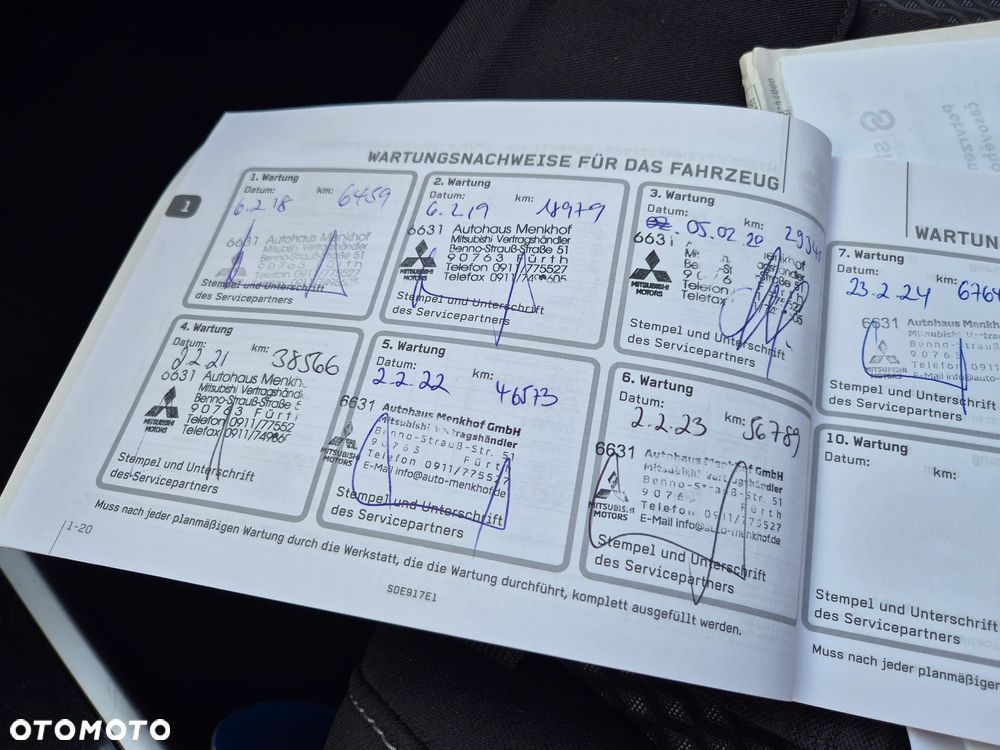 WARTUNGSNACHWEISE FÜR DAS FAHRZEUG
1
1. Wartung
Datum: km:
6.2.18 6459
6631 Autohaus Menkhof
Mitsubishi Vertragshändler
Benno-Strauß-Straße 51
90763 Fürth
Telefon 0911/775527
Telefax 0911/7498605
Stempel und Unterschrift
des Servicepartners
2. Wartung
Datum: km:
6.2.19 18979
6631 Autohaus Menkhof
Mitsubishi Vertragshändler
Benno-Strauß-Straße 51
90763 Fürth
Telefon 0911/775527
Telefax 0911/7498605
MITSUBISHI
MOTORS
Stempel und Unterschrift
des Servicepartners
3. Wartung
Datum: km:
05.02.20
6631
Telefon
Telefax
MITSUBISHI
MOTORS
Stempel und Unterschrift
des Servicepartners
4. Wartung
Datum: km:
2.2.21 38566
6631 Autohaus Menkh
Mitsubishi Vertragshändler
Benno-Strauß-Straße 5
90763 Fürth
Telefon 0911/77552
Telefax 0911/749860
MITSUBISHI
MOTORS
Stempel und Unterschrift
des Servicepartners
5. Wartung
Datum: km:
2.2.22 46573
6631 Autohaus Menkhof GmbH
Mitsubishi Vertragshändler
Benno-Strauß-Str. 51
90763 Fürth
Telefon 0911/775527
E-Mail info@auto-menkhof.de
MITSUBISHI
MOTORS
Stempel und Unterschrift
des Servicepartners
6. Wartung
Datum: km:
2.2.23 56789
6631 Autohaus Menkhof GmbH
Mitsubishi Vertragshändler
Benno-Strauß-Str. 51
90763 Fürth
Telefon 0911/775527
E-Mail info@auto-menkhof.de
MITSUBISHI
MOTORS
Stempel und Unterschrift
des Servicepartners
Muss nach jeder planmäßigen Wartung durch die Werkstatt, die die Wartung durchführt, komplett ausgefüllt werden.
1-20
SDE917E1
WARTUN
7. Wartung
Datum: km:
23.2.24 6764
6631 Autohaus Menkh
Mitsubishi Vertra
Benno-Strauß
90763
Telefon 0911
E-Mail info@auto
MITSUBISHI
MOTORS
Stempel und Unterschrift
des Servicepartners
10. Wartung
Datum:
Stempel und Unterschrift
des Servicepartners
Muss nach jeder planmäßigen
OTOMOTO